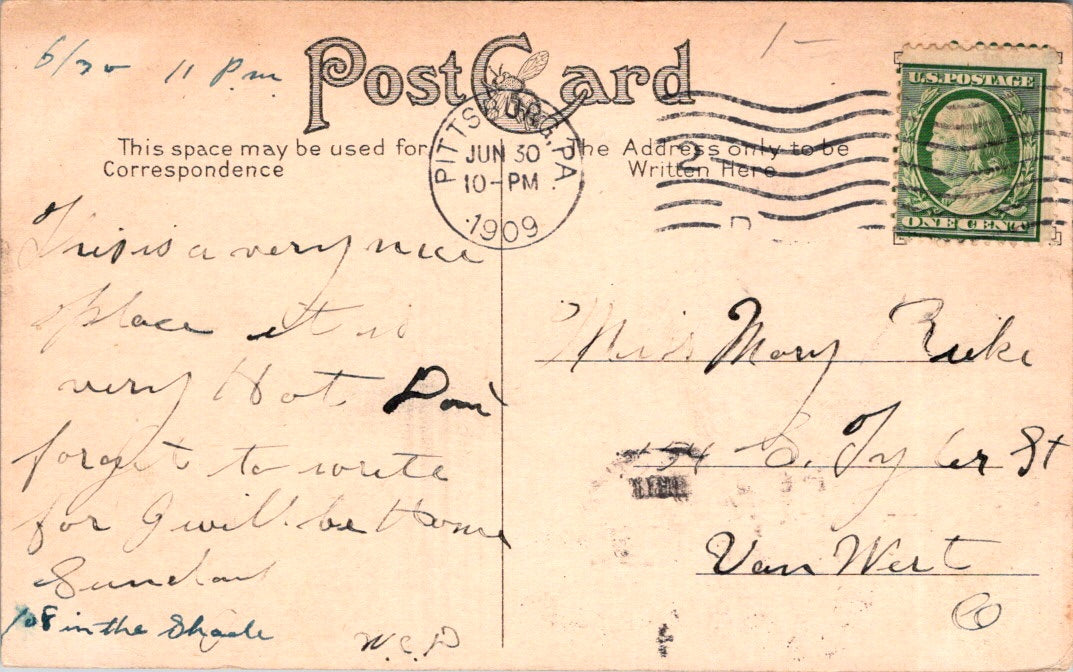 6/30 11 P.m
1-
Post Card
PITTSBURG, PA.
JUN 30
10-PM
1909
2
D
U.S. POSTAGE
ONE CENT
This space may be used for
Correspondence
The Address only to be
Written Here
This is a very nice
place it is
very Hot Don't
forget to write
for I will be Home
Sunday
108 in the Shade
W.C.P
Miss Mary
S. Tyler St
Van Wert
O